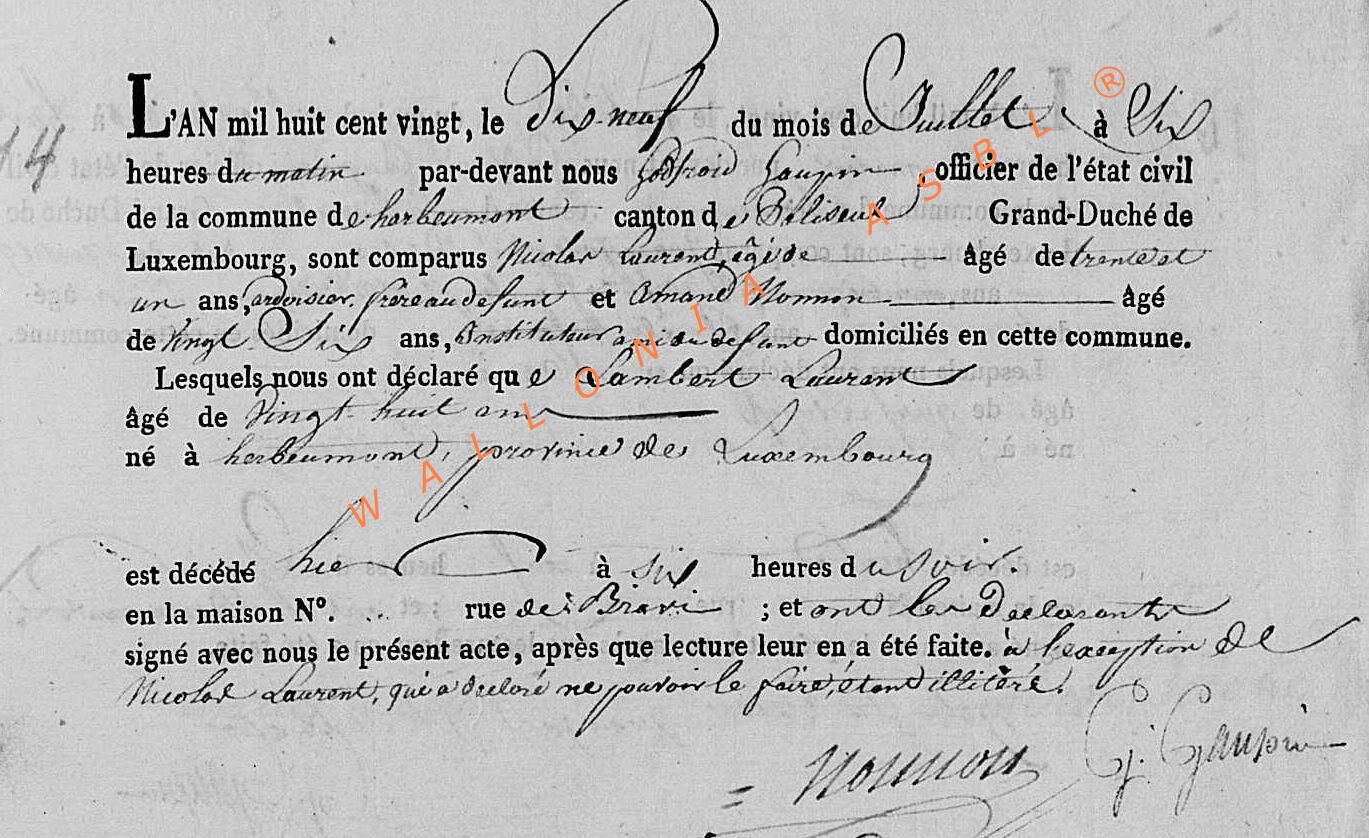 14
L'AN mil huit cent vingt, le Dix neuf du mois de Juillet à Six
heures du matin par-devant nous Godfroid Gaupin, officier de l'état civil
de la commune de herbeumont canton de Paliseul Grand-Duché de
Luxembourg, sont comparus Nicolas Laurent, âgé de âgé de trente et
un ans, ardoisier, frère au defunt et Amand Nonnon âgé
de vingt Six ans, Instituteur ami au defunt domiciliés en cette commune.
Lesquels nous ont déclaré que Lambert Laurent
âgé de Vingt huit ans
né à herbeumont, province de Luxembourg
est décédé hier à six heures du soir.
en la maison N°. ... rue de ; et ont les Declarants
signé avec nous le présent acte, après que lecture leur en a été faite. à l'exception de
Nicolas Laurent, qui a declaré ne pouvoir le faire, étant illitéré.
Nonnon G. Gaupin
WALLONIA ASBL ®